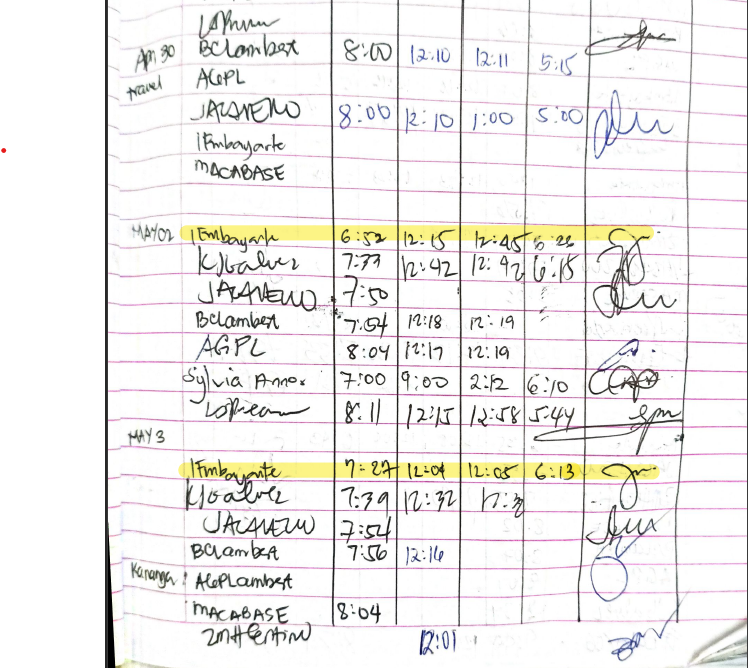 Apr 30 BClambert 8:00 12:10 12:11 5:15
travel AGPL
JAGAVENO 8:00 12:10 1:00 5:00
IEmbayarte
MACABASE
MAY 02 IEmbayarte 6:52 12:15 12:45
KJGalvez 7:39 12:42 12:42 6:15
7:50
BClambert 7:54 12:18 12:19
AGPL 8:04 12:17 12:19
Sylvia Annex 7:00 9:00 2:12 6:10
8:11 12:15 12:58 5:44
MAY 3
IEmbayarte 7:27 12:04 12:05 6:13
KJGalvez 7:39 12:32
7:54
BClambert 7:56 12:16
Kananga AGPLambert
MACABASE 8:04
12:01